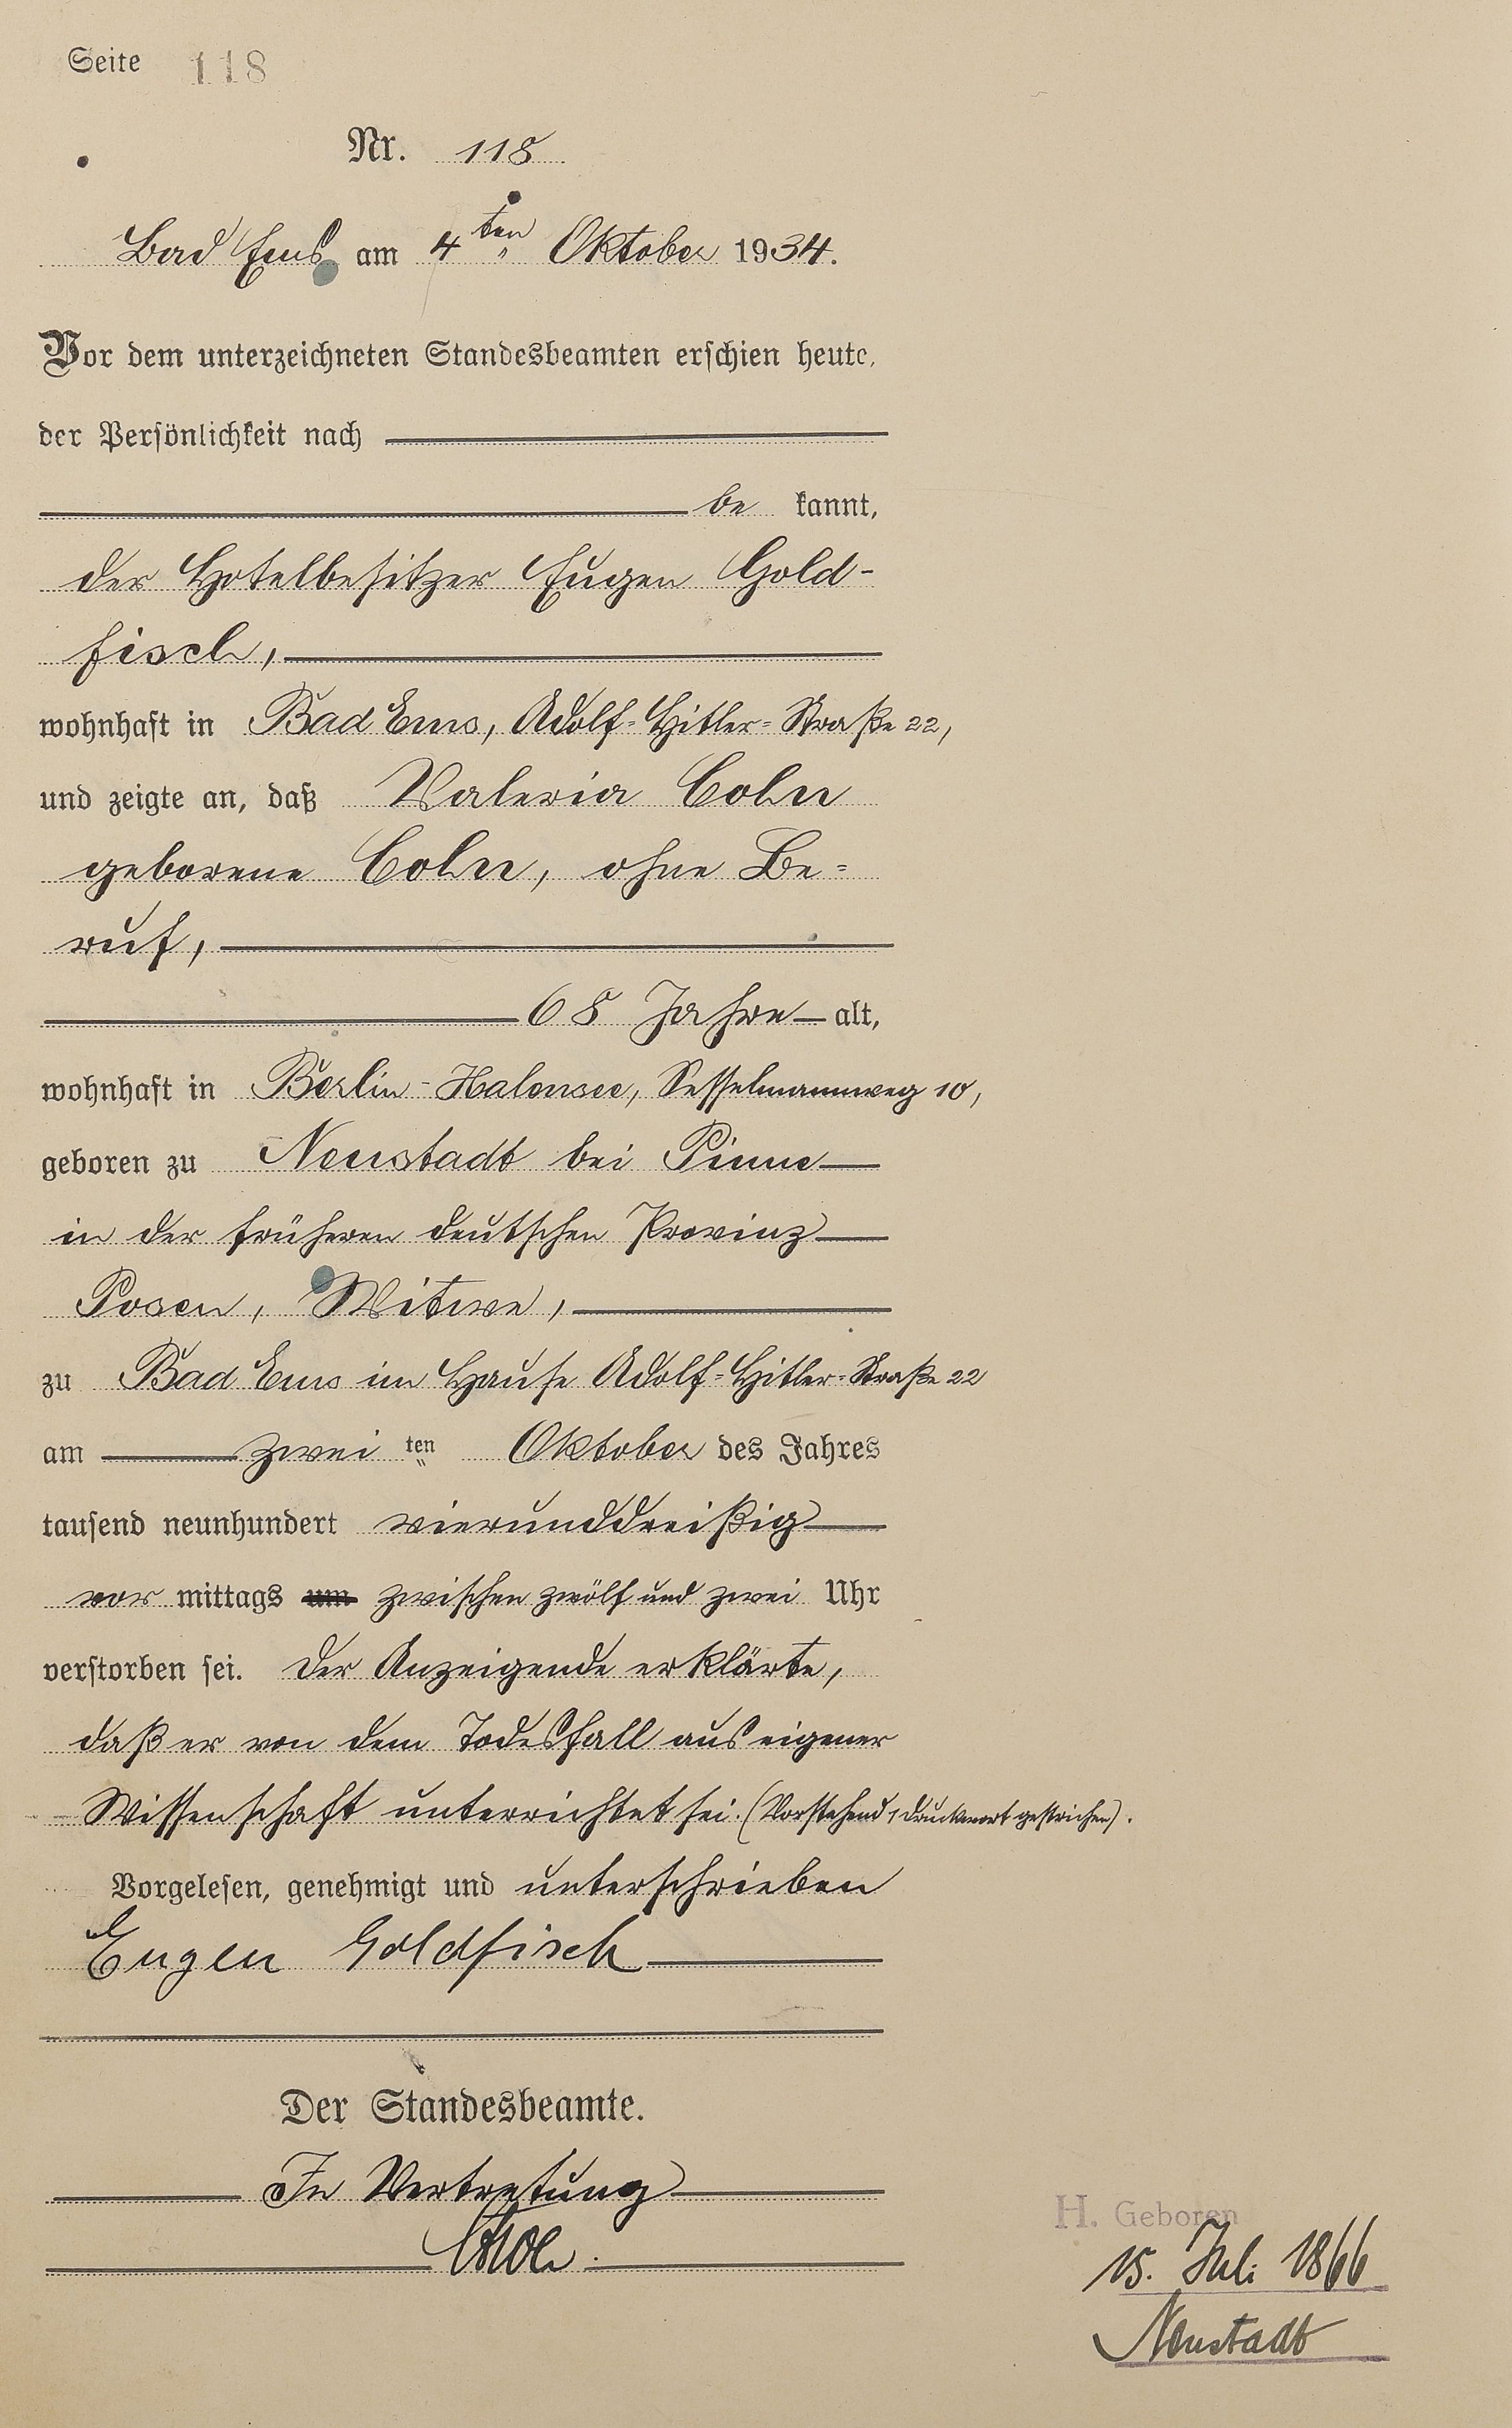 Seite 118
Nr. 118
Bad Ems am 4ten Oktober 1934.
Vor dem unterzeichneten Standesbeamten erschien heute,
der Persönlichkeit nach
be kannt,
der Hotelbesitzer Eugen Gold-
fisch,
wohnhaft in Bad Ems, Adolf-Hitler-Straße 22,
und zeigte an, daß Valeria Cohn
geborene Cohn, ohne Be-
ruf,
68 Jahre alt,
wohnhaft in Berlin-Halensee, Sesselmannweg 10,
geboren zu Neustadt bei Pinne
in der früheren deutschen Provinz
Posen, Witwe,
zu Bad Ems im Hause Adolf-Hitler-Straße 22
am zwei ten Oktober des Jahres
tausend neunhundert vierunddreißig
vor mittags um zwischen zwölf und zwei Uhr
verstorben sei. Der Anzeigende erklärte,
daß er von dem Todesfall aus eigener
Wissenschaft unterrichtet sei. (Vorstehend 1 Druckwort gestrichen).
Vorgelesen, genehmigt und unterschrieben
Eugen Goldfisch
Der Standesbeamte.
In Vertretung
H. Geboren
15. Juli 1866
Neustadt